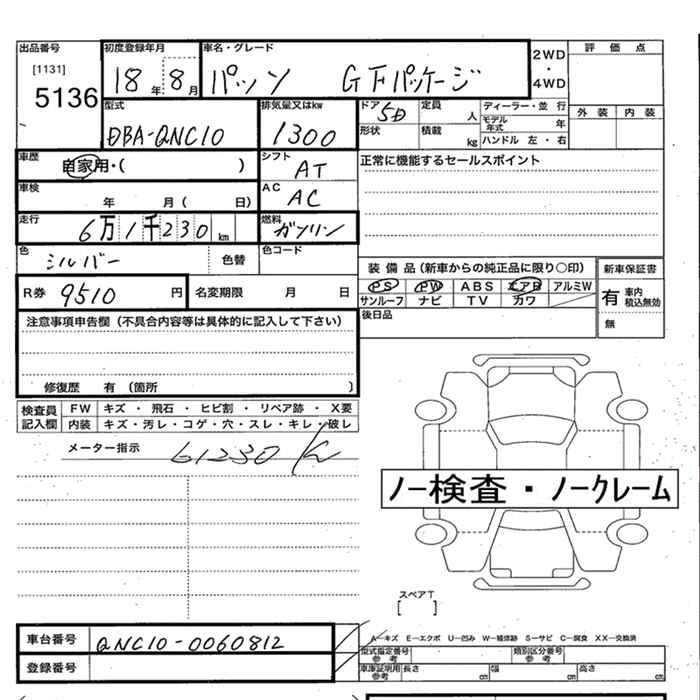 出品番号
[1131]
5136
初度登録年月
18年 8月
車名・グレード
パッソ GFパッケージ
2WD
・
4WD
評価点
外装 内装
型式
DBA-QNC10
排気量又はkw
1300
ドア 5D
定員 人
ディーラー・並行
モデル年式 年
形状
積載 kg
ハンドル 左・右
車歴
自家用・( )
シフト
AT
正常に機能するセールスポイント
車検
年 月( 日)
AC
AC
走行
6万1千230 km
燃料
ガソリン
色
シルバー
色替
色コード
装備品(新車からの純正品に限り○印)
新車保証書
PS PW ABS エアB アルミW
サンルーフ ナビ TV カワ
有 車内積込無効
無
R券 9510 円
名変期限 月 日
後日品
注意事項申告欄(不具合内容等は具体的に記入して下さい)
修復歴 有(箇所 )
検査員記入欄
FW キズ・飛石・ヒビ割・リペア跡・X要
内装 キズ・汚レ・コゲ・穴・スレ・キレ・破レ
メーター指示 61230
ノー検査・ノークレーム
スペアT
[ ]
A―キズ E―エクボ U―凹み W―補修跡 S―サビ C―腐食 XX―交換済
車台番号 QNC10-0060812
登録番号
型式指定番号 参考
類別区分番号 参考
車庫証明用 参考 長さ cm 幅 cm 高さ cm